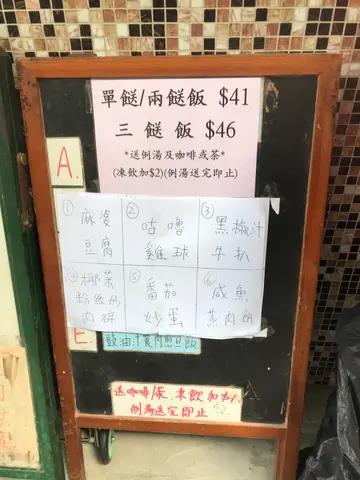 單餸/兩餸飯 $41
三餸飯 $46
*送例湯及咖啡或茶*
(凍飲加$2)(例湯送完即止)
A.
① 麻婆豆腐
② 咕嚕雞球
③ 黑椒汁牛扒
④ 椰菜粉絲炒肉碎
⑤ 番茄炒蛋
⑥ 咸魚蒸肉餅
E.
豉油
煎旦飯
送咖啡/茶.凍飲加
例湯送完即止